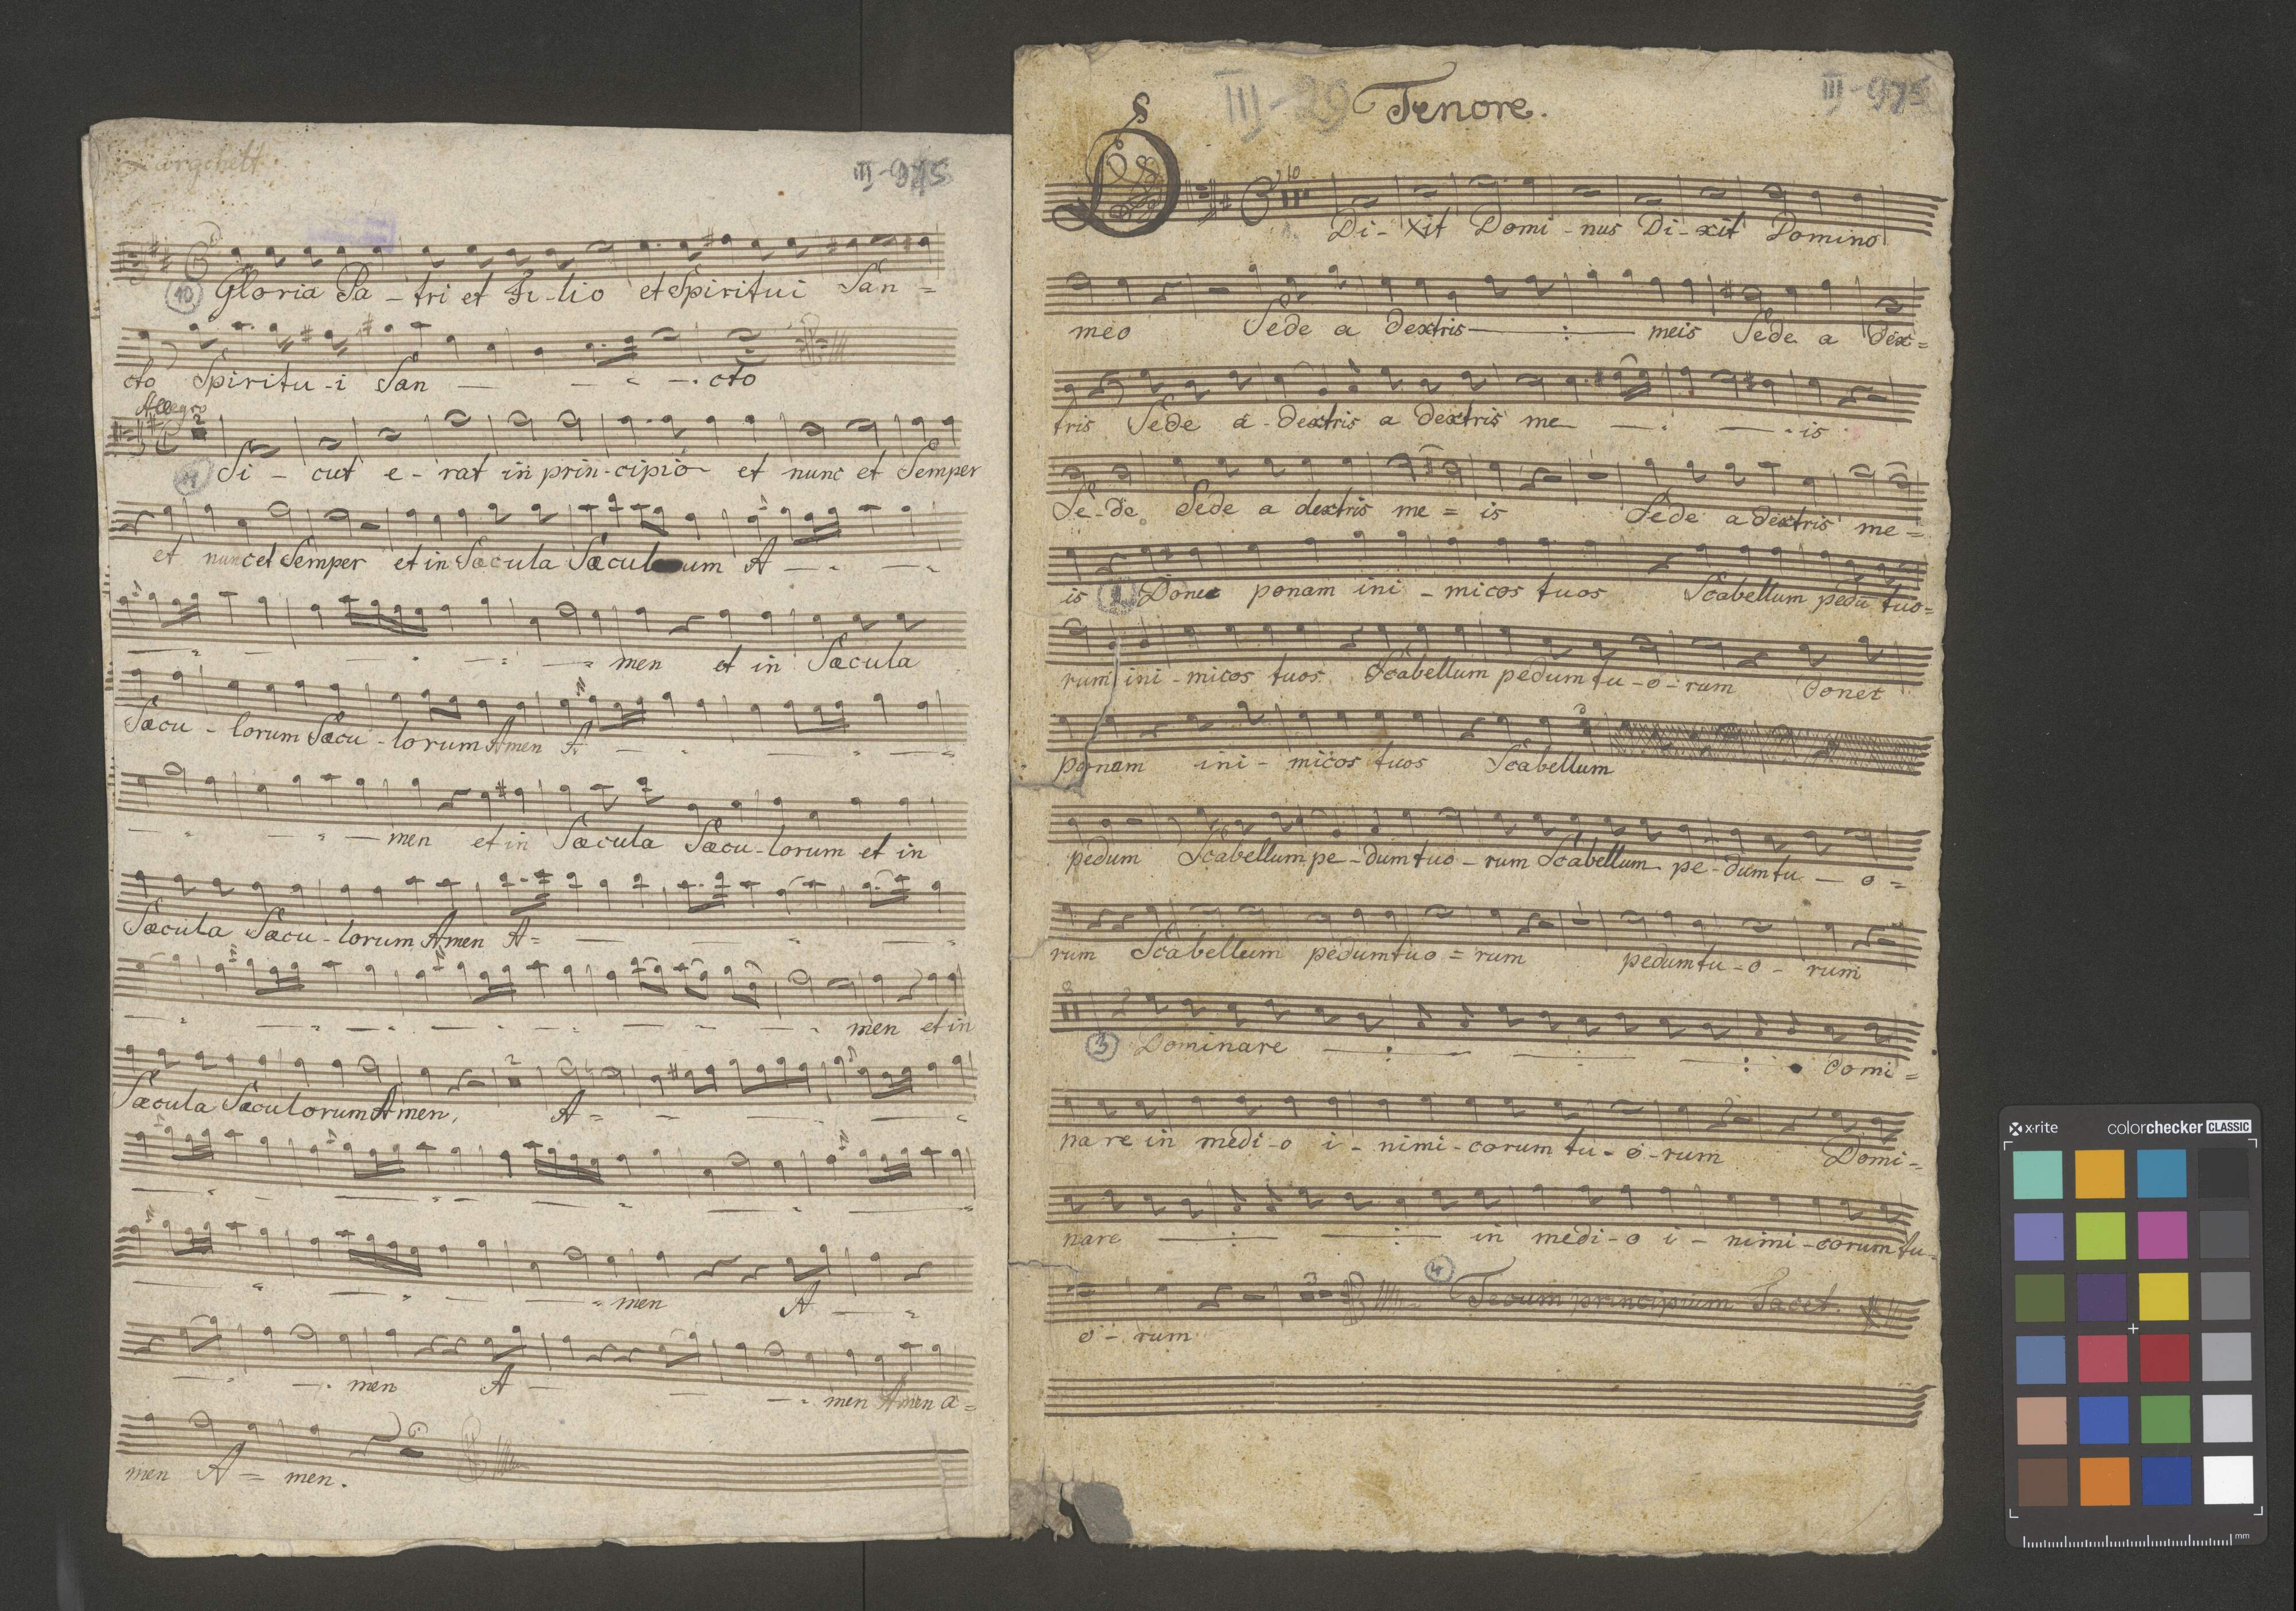 III-975
10 Gloria Pa - tri et Fi - lio et Spiritui San =
cto Spiritu - i San — - - -. cto
Allegro
2
Si - cut e - rat in prin - cipio et nunc et Semper
et nunc et Semper et in Sæcula Sæcul um A — - —
— - — — - — - — - men et in Sæcula
Sæcu - lorum Sæcu - lorum Amen A — - — - —
— - — - — men et in Sæcula Sæcu - lorum et in
Sæcula Sæcu - lorum Amen A = — — - — -
— - — - — - — - — - — - men et in
Sæcula Sæculorum Amen, 2 A = — — - — -
— - — — - — — - — - —
— - — - — - men A — -
— - — - men A — — — - men Amen a =
men A = men.
III-29 Tenore. III-975
D 10
Di - xit Domi - nus Di - xit Domino
meo Sede a dextris — : — meis Sede a dex =
tris Sede a dextris a dextris me — - : — - - is
Se - de Sede a dextris me = is Sede a dextris me =
is Donec ponam ini - micos tuos Scabellum pedū tuo =
rum ini - micos tuos Scabellum pedum tu - o - rum donec
ponam ini - micos tuos Scabellum
pedum Scabellum pe - dum tuo - rum Scabellum pe - dum tu — o =
rum Scabellum pedum tuo = rum pedum tu - o - rum
8
3 Dominare — : — — : — — : domi =
nare in medi - o i - nimi - corum tu - o - rum Domi =
nare — : — — : — in medi - o i - nimi - corum tu =
3 4 Tecum principium Tacet.
o - rum
x-rite colorchecker CLASSIC
mm